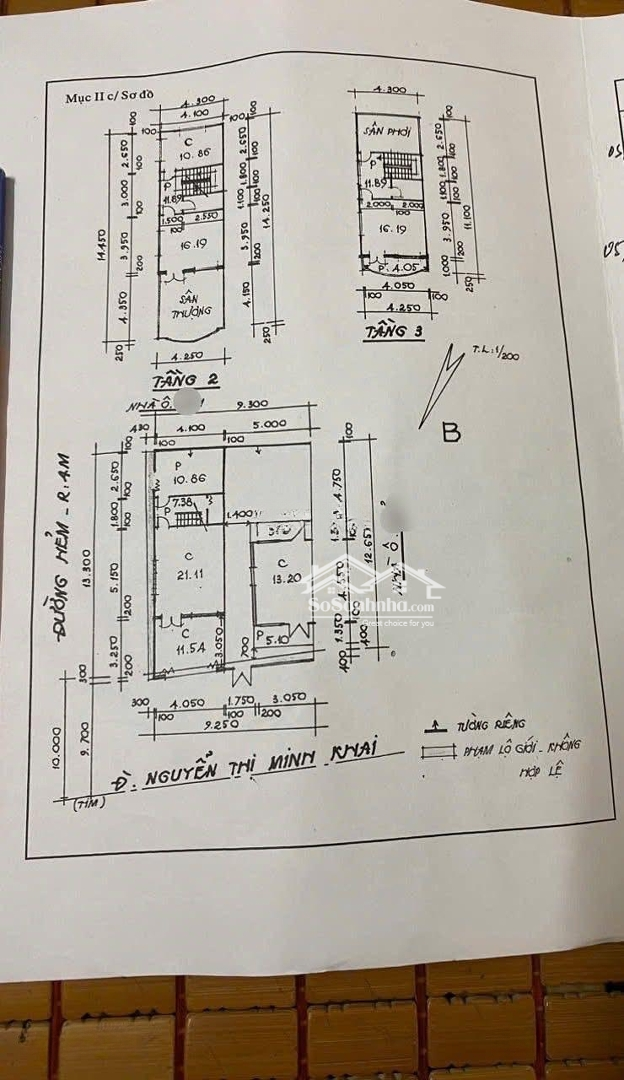 Mục II c/ Sơ đồ
4.300
4.100
100
C
10.86
P
11.89
1.500
2.550
100
16.19
SÂN
THƯỢNG
14.450
100
2.650
3.000
100
3.950
200
4.350
250
100
2.650
100
1.800
1.100
100
3.950
200
4.150
250
14.250
4.250
TẦNG 2
4.300
SÂN PHƠI
P
11.89
2.000
2.000
100
16.19
P. 4.05
100
2.650
100
1.800
1.100
100
3.950
200
1.000
250
11.100
4.050
100
100
4.250
TẦNG 3
T.L: 1/200
B
NHÀ Ô.
9.300
430
4.100
5.000
100
100
P
10.86
7.38
P
C
21.11
C
11.54
3.050
1.400
C
13.20
P
5.10
700
ĐƯỜNG HẺM - R: 4M
100
2.650
100
1.800
100
5.150
200
3.250
200
13.300
300
9.700
10.000
(TIM)
100
4.750
12.650
100
1.350
400
400
NHÀ Ô.
300
4.050
1.750
3.050
100
100
200
9.250
Đ: NGUYỄN THỊ MINH KHAI
TƯỜNG RIÊNG
PHẠM LỘ GIỚI - KHÔNG
HỢP LỆ
SoSanhnha.com
Great choice for you